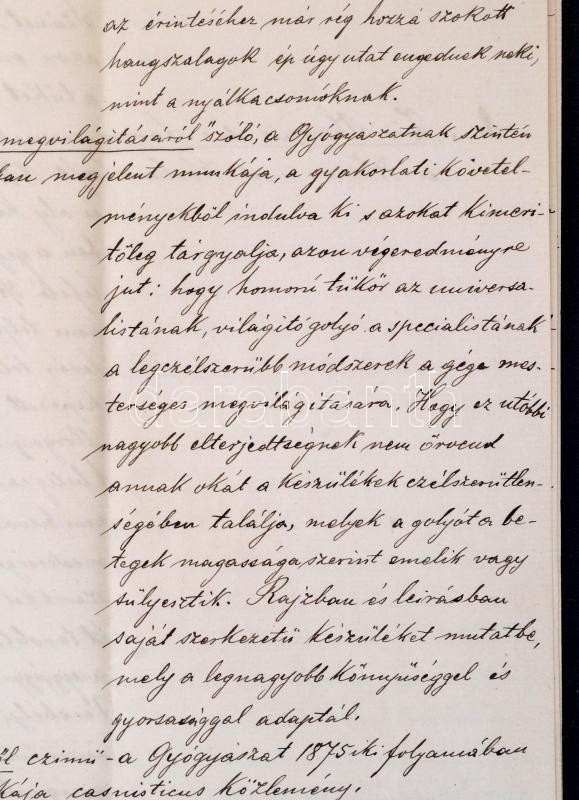 az érintéséhez már rég hozzá szokott
hangszalagok ép úgy utat engednek neki,
mint a nyálkacsomóknak.
megvilágitásáról" szóló, a Gyógyászatnak szintén
ban megjelent munkája, a gyakorlati követel-
ményekből indulva ki s azokat kimeri-
tőleg tárgyalja, azon végeredményre
jut: hogy homorú tükör az universa-
listának, világitó golyó a specialistának
a legczélszerübb módszerek a gége mes-
terséges megvilágitására. Hogy ez utóbbi
nagyobb elterjedtségnek nem örvend
annak okát a készülékek czélszerütlen-
ségében találja, melyek a golyót a be-
tegek magassága szerint emelik vagy
sülyesztik. Rajzban és leirásban
saját szerkezetü készüléket mutat be,
mely a legnagyobb könnyüséggel és
gyorsasággal adaptál.
ől czimü - a Gyógyászat 1875iki folyamában
kája casuisticus közlemény.
darabanth